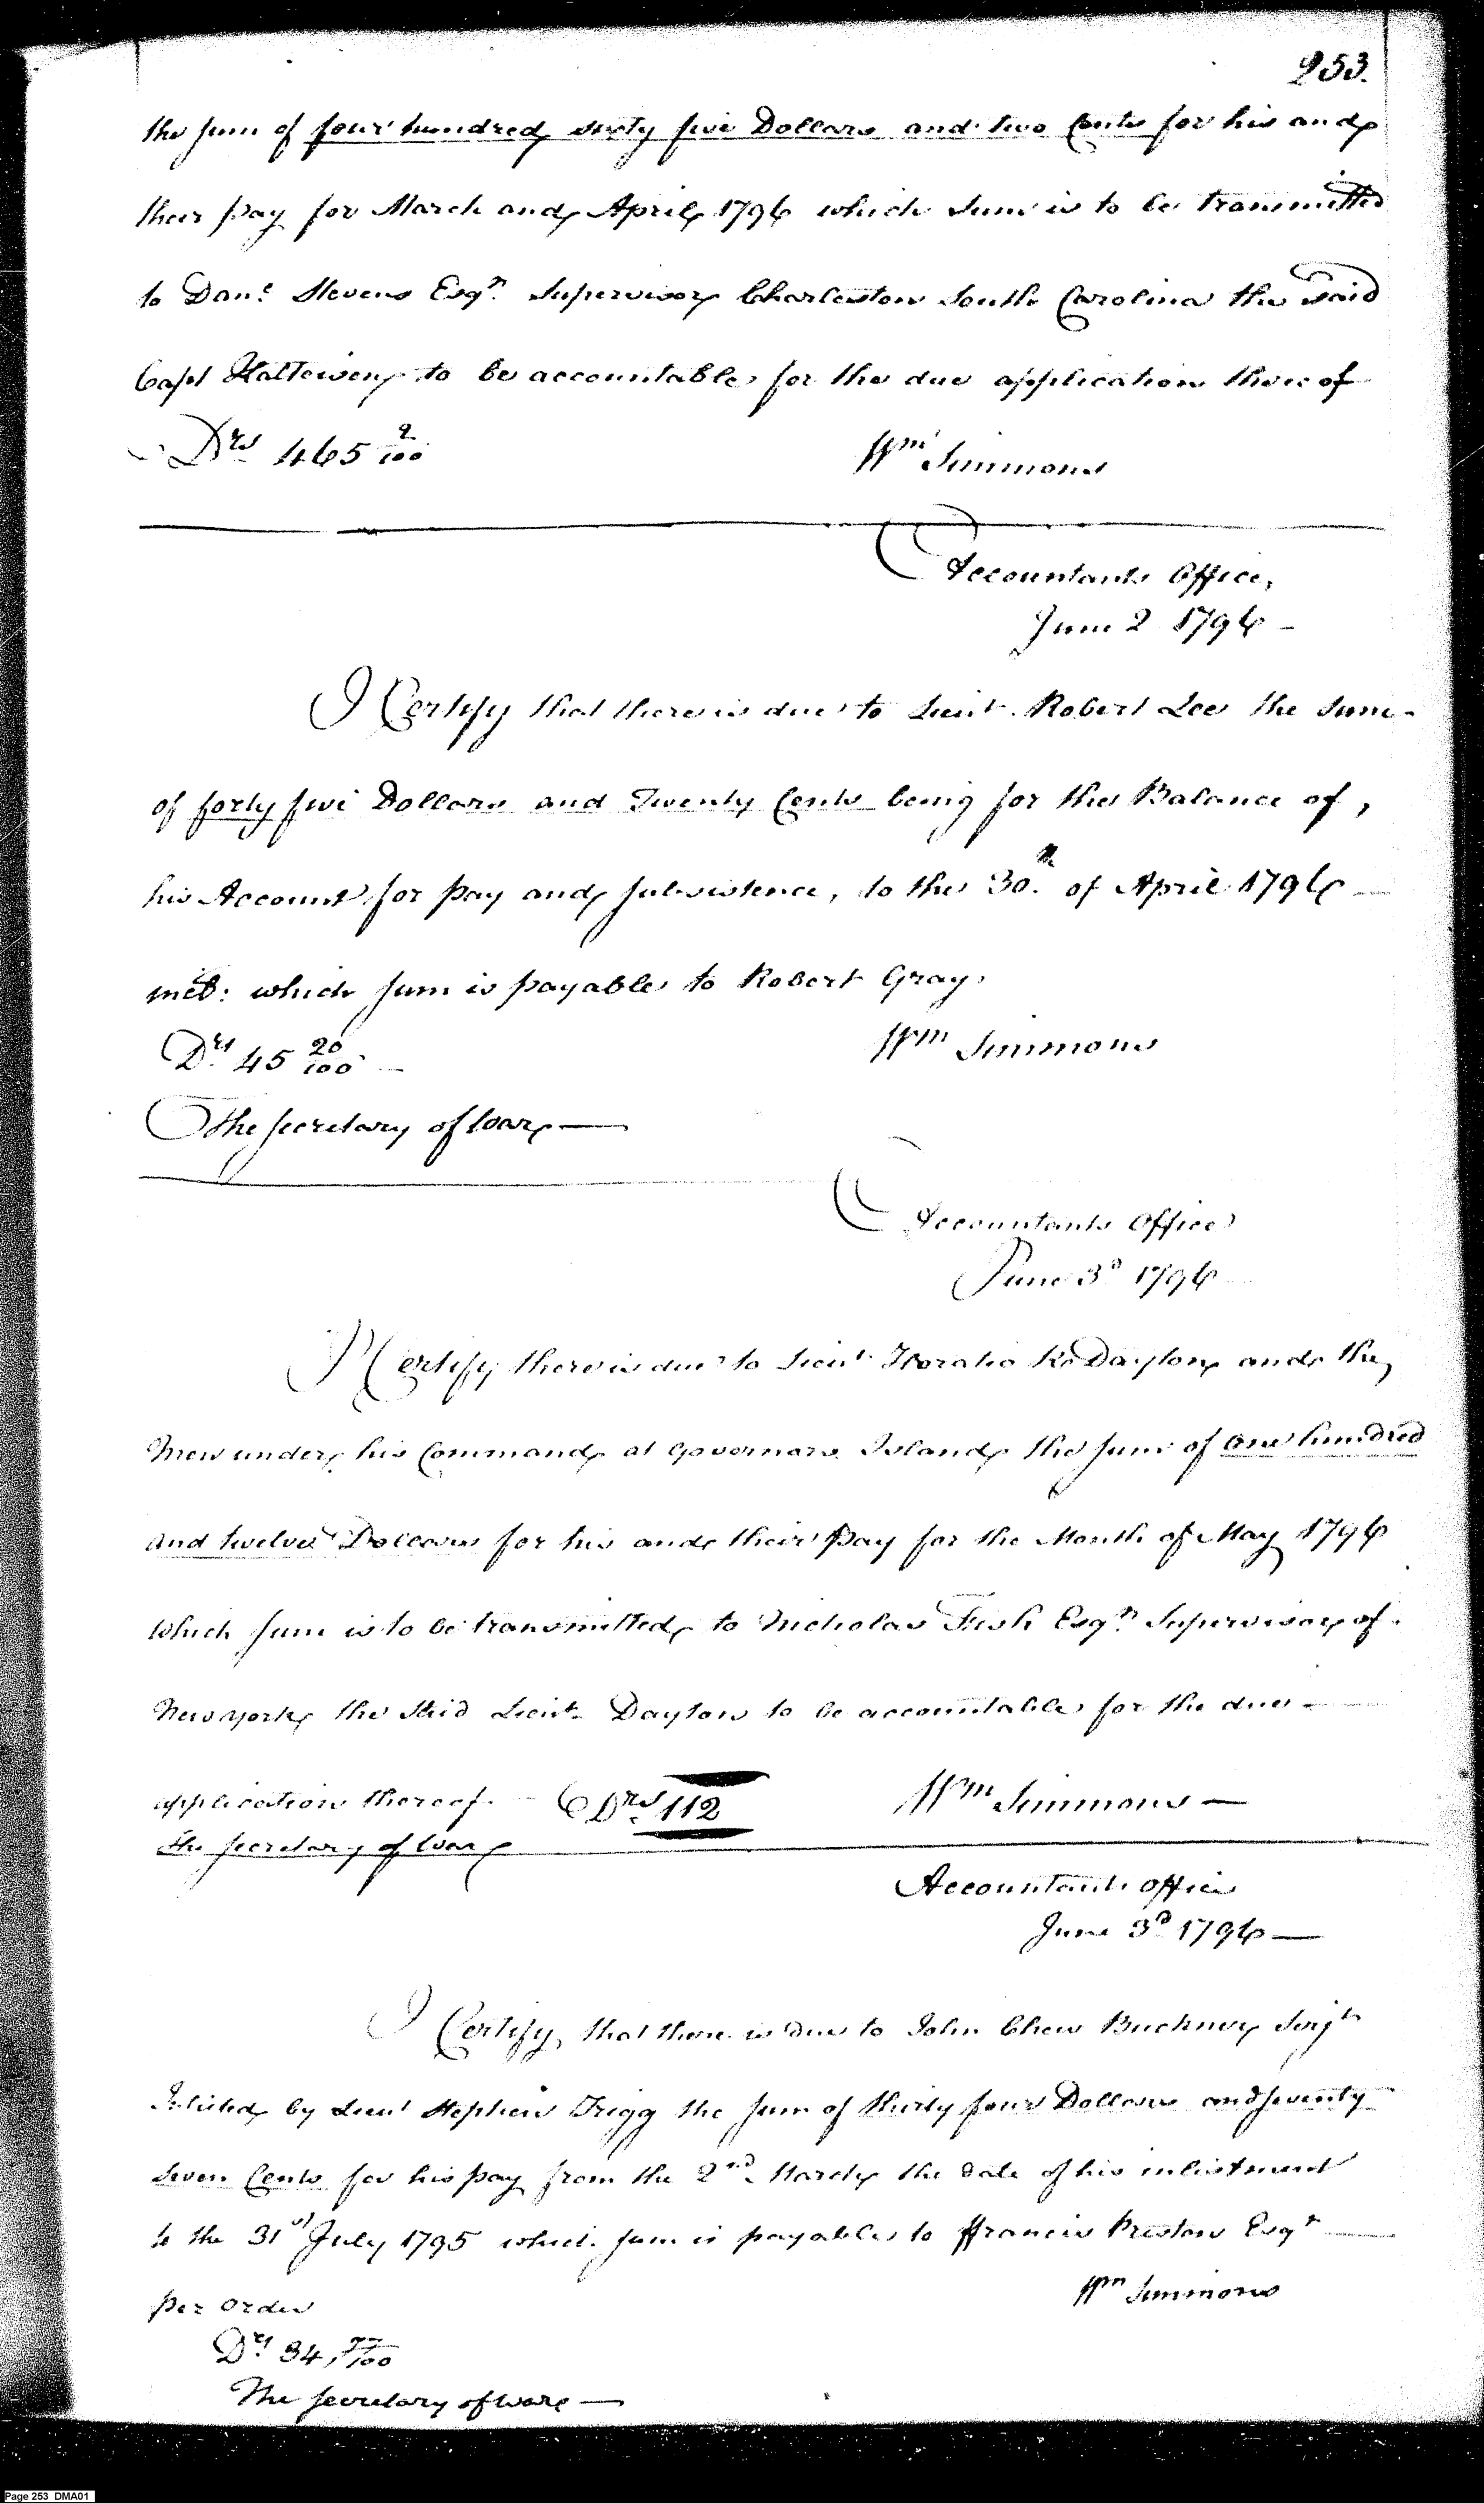 253.
the sum of four hundred sixty five Dollars and two Cents for his and
their pay for March and April 1796 which sum is to be transmitted
to Danl Stevens Esqr. Supervisor Charleston South Carolina the said
Capt to be accountable for the due application thereof
Drs 465 2/100
Wm Simmons
Accountants Office,
June 2 1796 -
I Certify that there is due to Lieut. Robert Lee the sum -
of forty five Dollars and Twenty Cents being for the Balance of,
his Account, for pay and subsistence, to the 30.th of April 1796 —
inst: which sum is payable to Robert Gray.
Wm Simmons
Drs 45 20/100 —
The Secretary of War —
Accountants Office
June 3d 1796
I Certify there is due to Lieut Horatio Rs Dayton and the
Men under his Command at Governors Island the sum of One hundred
and twelve Dollars for his and their Pay for the Month of May 1796
which sum is to be transmitted to Nicholas Fish Esqr. Supervisor of
New york, the said Lieut. Dayton to be accountable for the due —
application thereof. Drs 112
Wm Simmons —
The Secretary of War
Accountants office
June 3d 1796 —
I Certify, that there is due to John Chew Buckner Serjt
Inlisted by Lieut Stephen Trigg the sum of thirty four Dollars and seventy
seven Cents for his pay from the 2nd. March the date of his inlistment
to the 31st July 1795 which sum is payable to Francis Preston Esqr —
per order
Wm Simmons
Drs 34, 77/100
The Secretary of War —
Page 253 DMA01